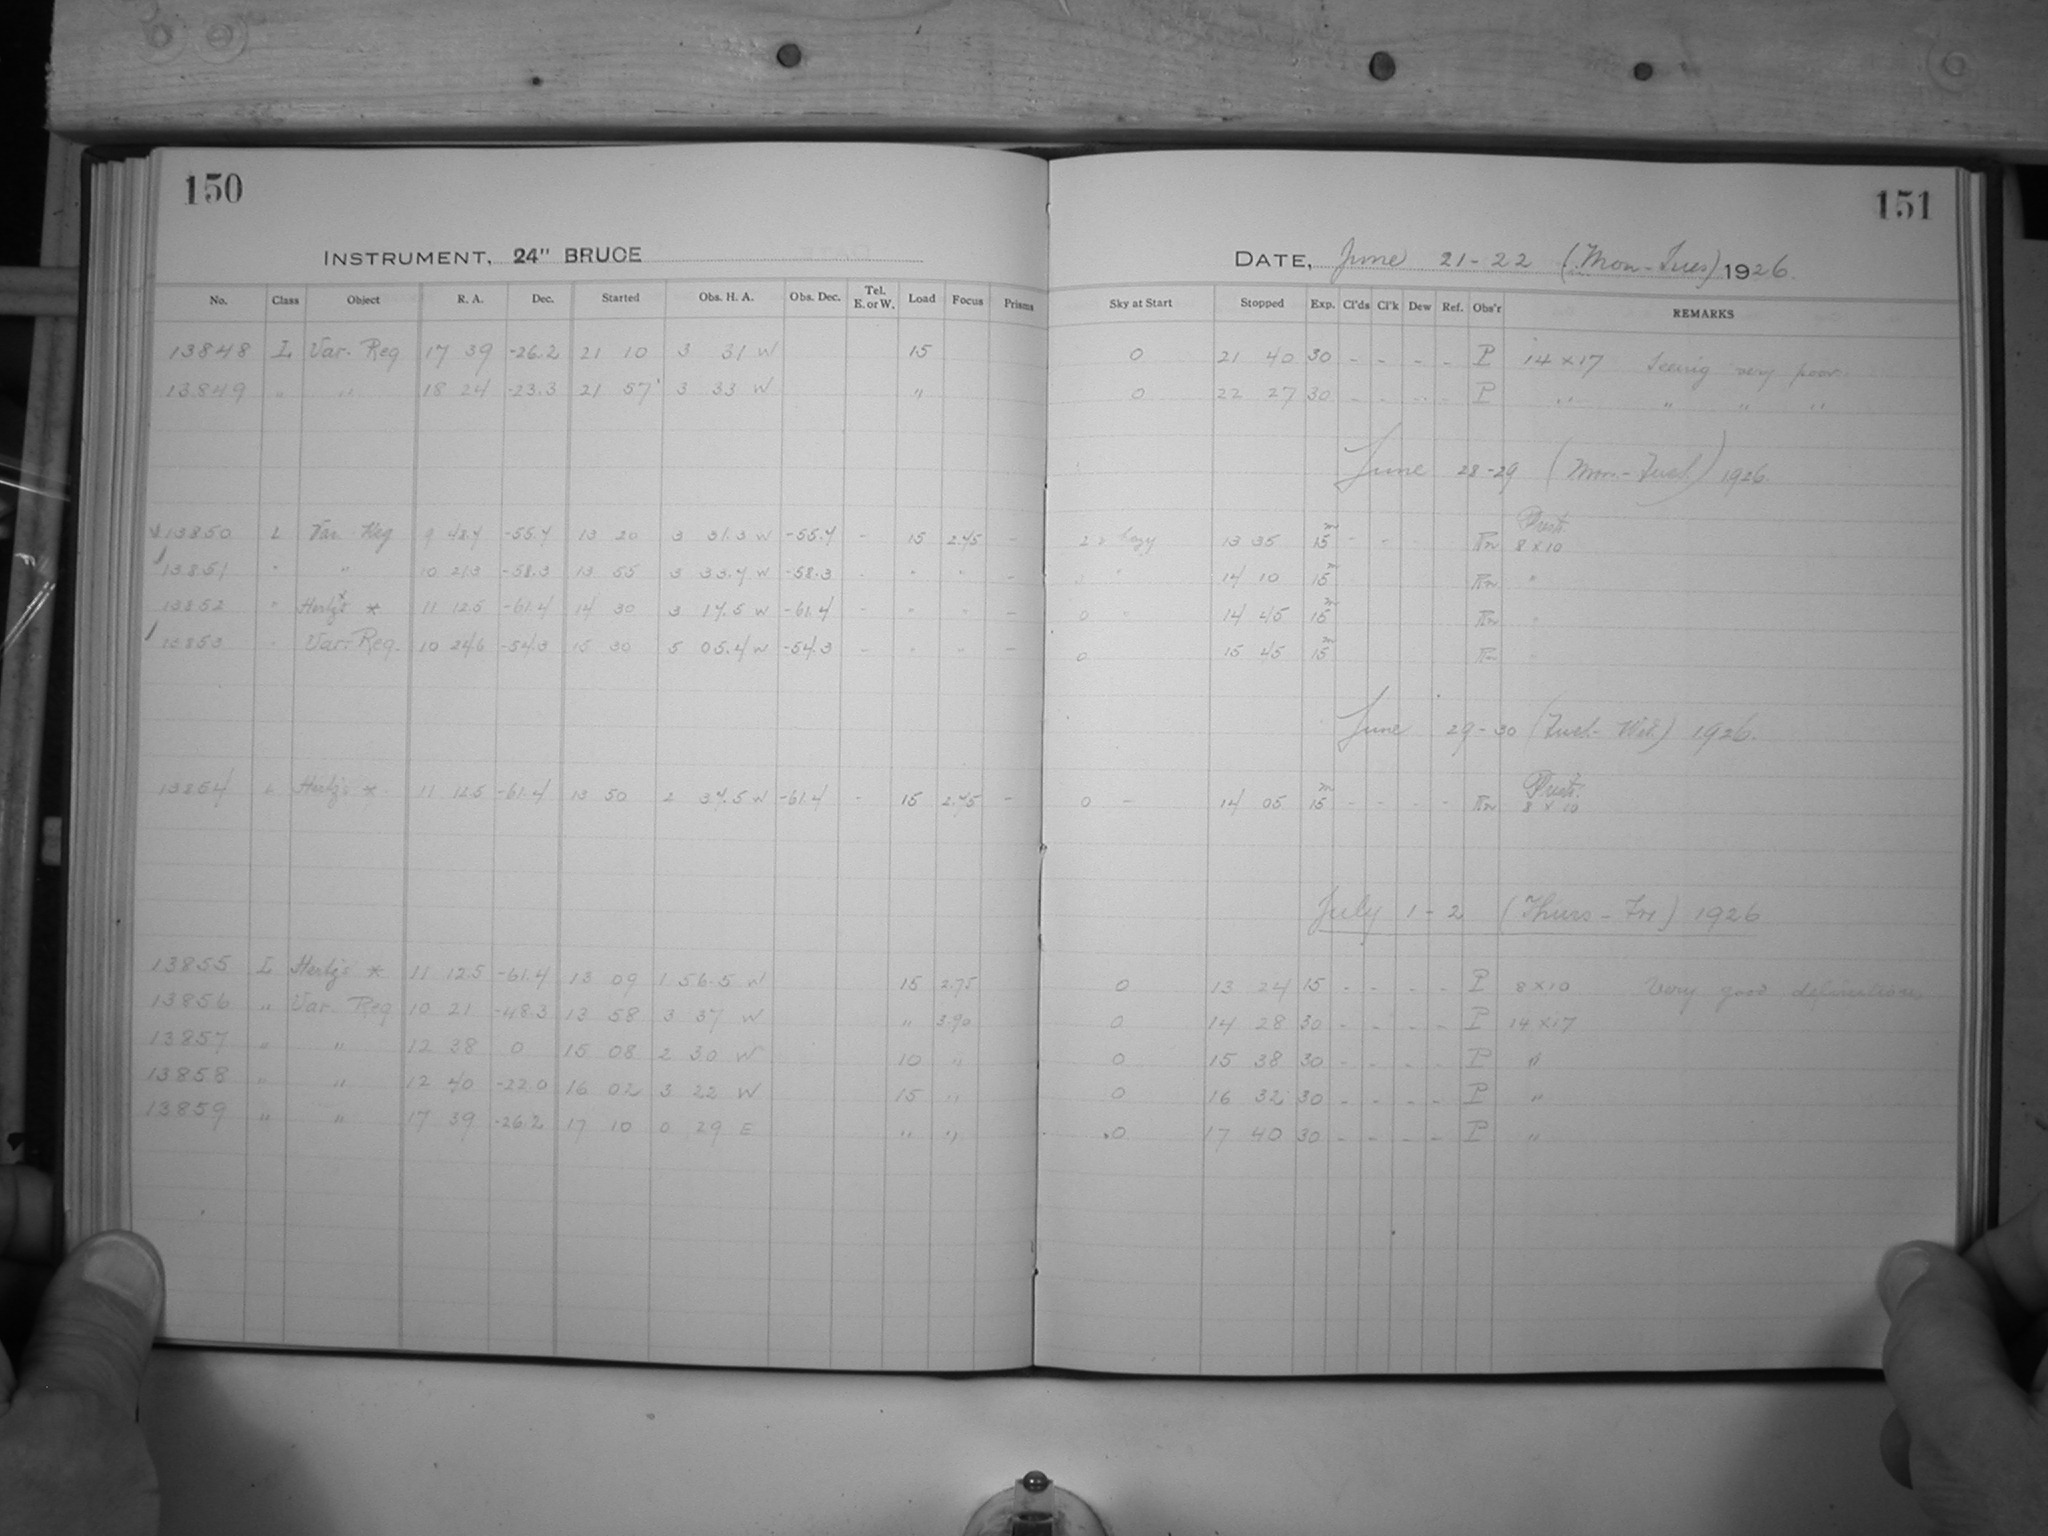 150
151
INSTRUMENT, 24" BRUCE
DATE, June 21-22 (Mon-Tues) 1926.
No. Class Object R. A. Dec. Started Obs. H. A. Obs. Dec. Tel. E. or W. Load Focus Prisms Sky at Start Stopped Exp. Cl'ds Cl'k Dew Ref. Obs'r REMARKS
13848 L Var. Reg 17 39 -26.2 21 10 3 31 W 15 0 21 40 30 - - - - P 14 x 17 Seeing very poor.
13849 " " 18 24 -23.3 21 57 3 33 W " 0 22 27 30 - - - - P " " " "
June 28-29 (Mon-Tues) 1926.
13850 L Var. Reg 9 48.4 -55.4 13 20 3 31.3 W -55.4 - 15 2.75 - hazy 13 35 15m - - - 8 x 10
13851 " " 10 21.3 -58.3 13 55 3 33.4 W -58.3 - " " - " 14 10 15m "
13852 " Hertz's * 11 12.5 -61.4 14 30 3 17.5 W -61.4 - " " - 0 " 14 45 15m "
13853 " Var. Reg. 10 24.6 -54.3 15 30 5 05.4 W -54.3 - " " - 0 15 45 15m "
June 29-30 (Tues-Wed.) 1926.
13854 L Hertz's * 11 12.5 -61.4 13 50 2 37.5 W -61.4 - 15 2.75 - 0 - 14 05 15m - - - - 8 x 10
July 1-2 (Thurs-Fri) 1926
13855 L Hertz's * 11 12.5 -61.4 13 09 1 56.5 W 15 2.75 0 13 24 15 - - - - P 8 x 10 Very good definition
13856 " Var. Reg 10 21 -48.3 13 58 3 37 W " 3.90 0 14 28 30 - - - - P 14 x 17
13857 " " 12 38 0 15 08 2 30 W 10 " 0 15 38 30 - - - - P "
13858 " " 12 40 -22.0 16 02 3 22 W 15 " 0 16 32 30 - - - - P "
13859 " " 17 39 -26.2 17 10 0 29 E " " 0 17 40 30 - - - - P "